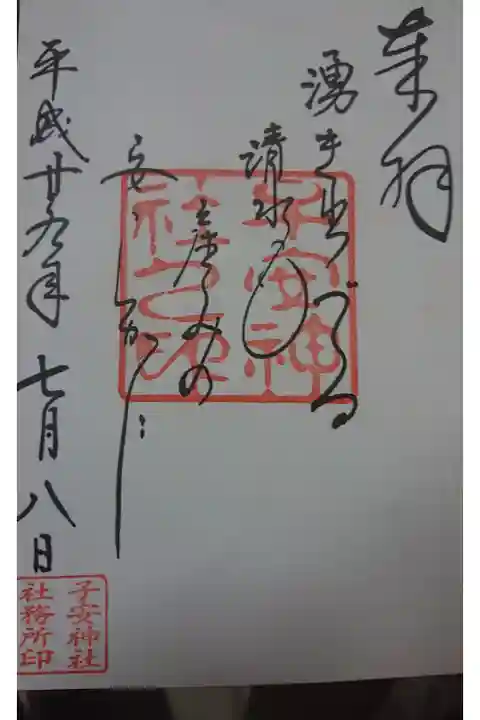 奉拝
湧き出づる
清水の
産みの
安
平成廿九年 七月八日
子安神社之印
子安神社
社務所印